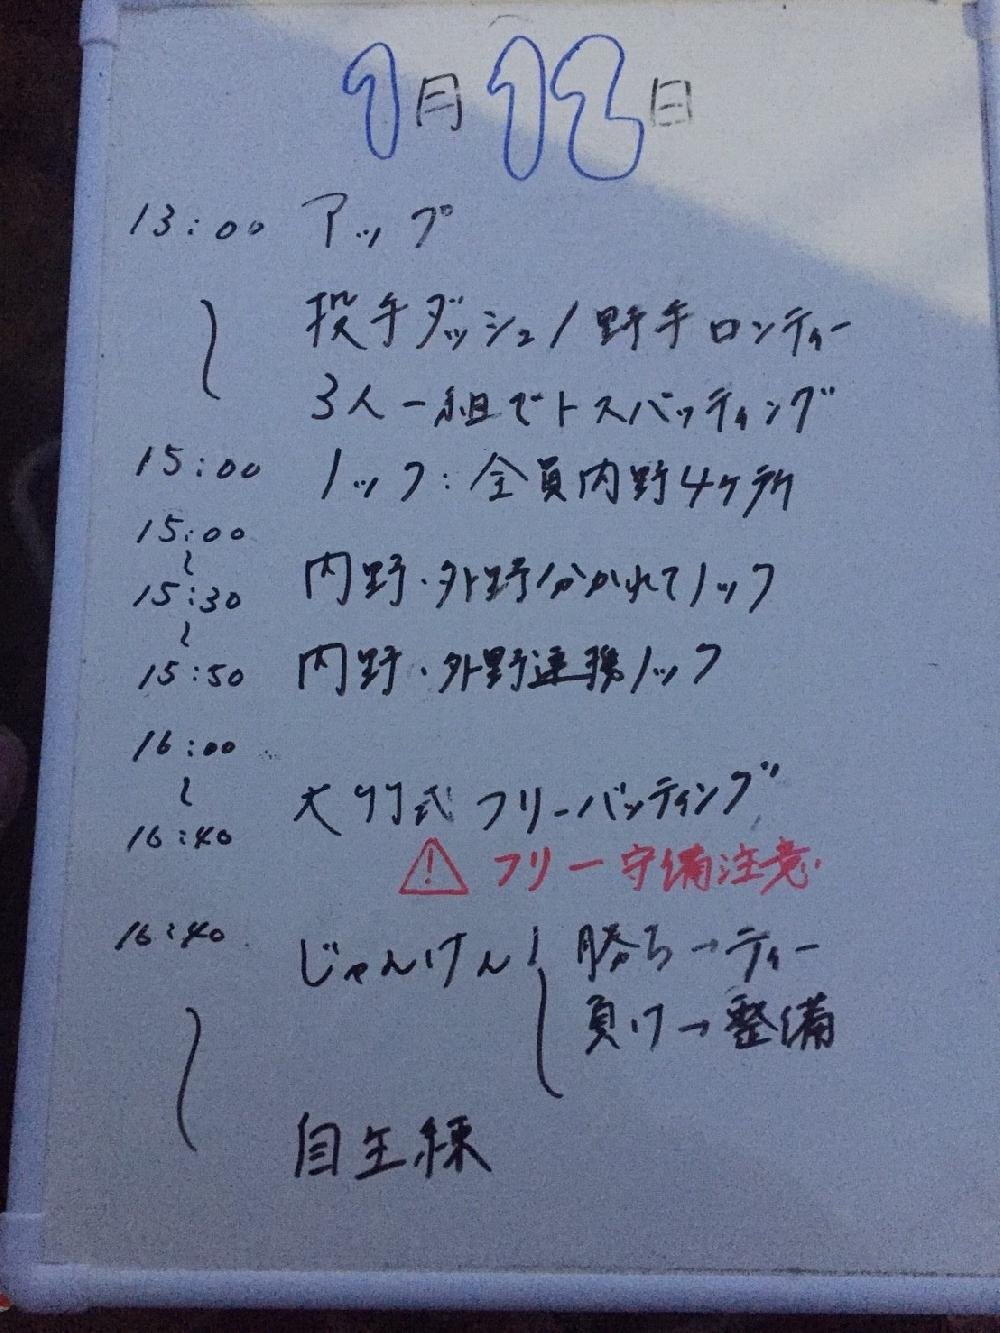 1月12日
13:00 アップ
〜 投手ダッシュ/野手ロンティー
3人一組でトスバッティング
15:00 ノック:全員内野4ケ所
15:00
〜 内野・外野分かれてノック
15:30
〜
15:50 内野・外野連携ノック
16:00
〜 大竹式フリーバッティング
16:40
⚠ フリー守備注意.
16:40 じゃんけん! 勝ち→ティー
負け→整備
〜
自主練